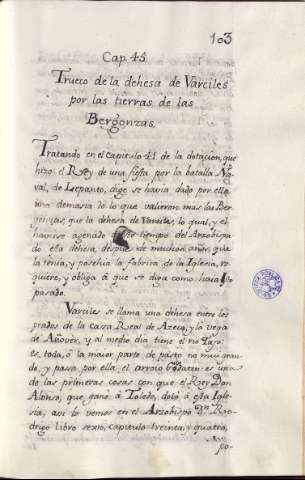 103
Cap. 45
Trueco de la dehesa de Varciles
por las tierras de las
Bergonzas.
Tratando en el capitulo 41 de la dotacion, que
hizo el Rey de una fiesta por la batalla Na-
val, de Lepanto, dige se havia dado por ello
una demasia de lo que valieron mas las Ber-
gonzas, que la dehesa de Varciles, lo qual, y el
haverse agenado tiempo del Arzobispa-
do esta dehesa, despues de muchos años, que
la tenia, y posehia la fabrica, de la Iglesia, re-
quiere, y obliga à que se diga como havia
pasado.
Varciles se llama una dehesa entre los
prados de la casa Real de Azeca, y la vega
de Añover, y al medio dia tiene el rio Tajo:
es, toda, ò la maior parte de pasto no mui gran-
de, y pasa por ella el arroio es una
de las primeras cosas con que el Rey Don
Alonso, que ganò à Toledo, dotò à esta Igle-
sia, asi lo vemos en el Arzobispo Dn. Ro-
drigo libro sexto, capitulo treinta, y quatro,
po-